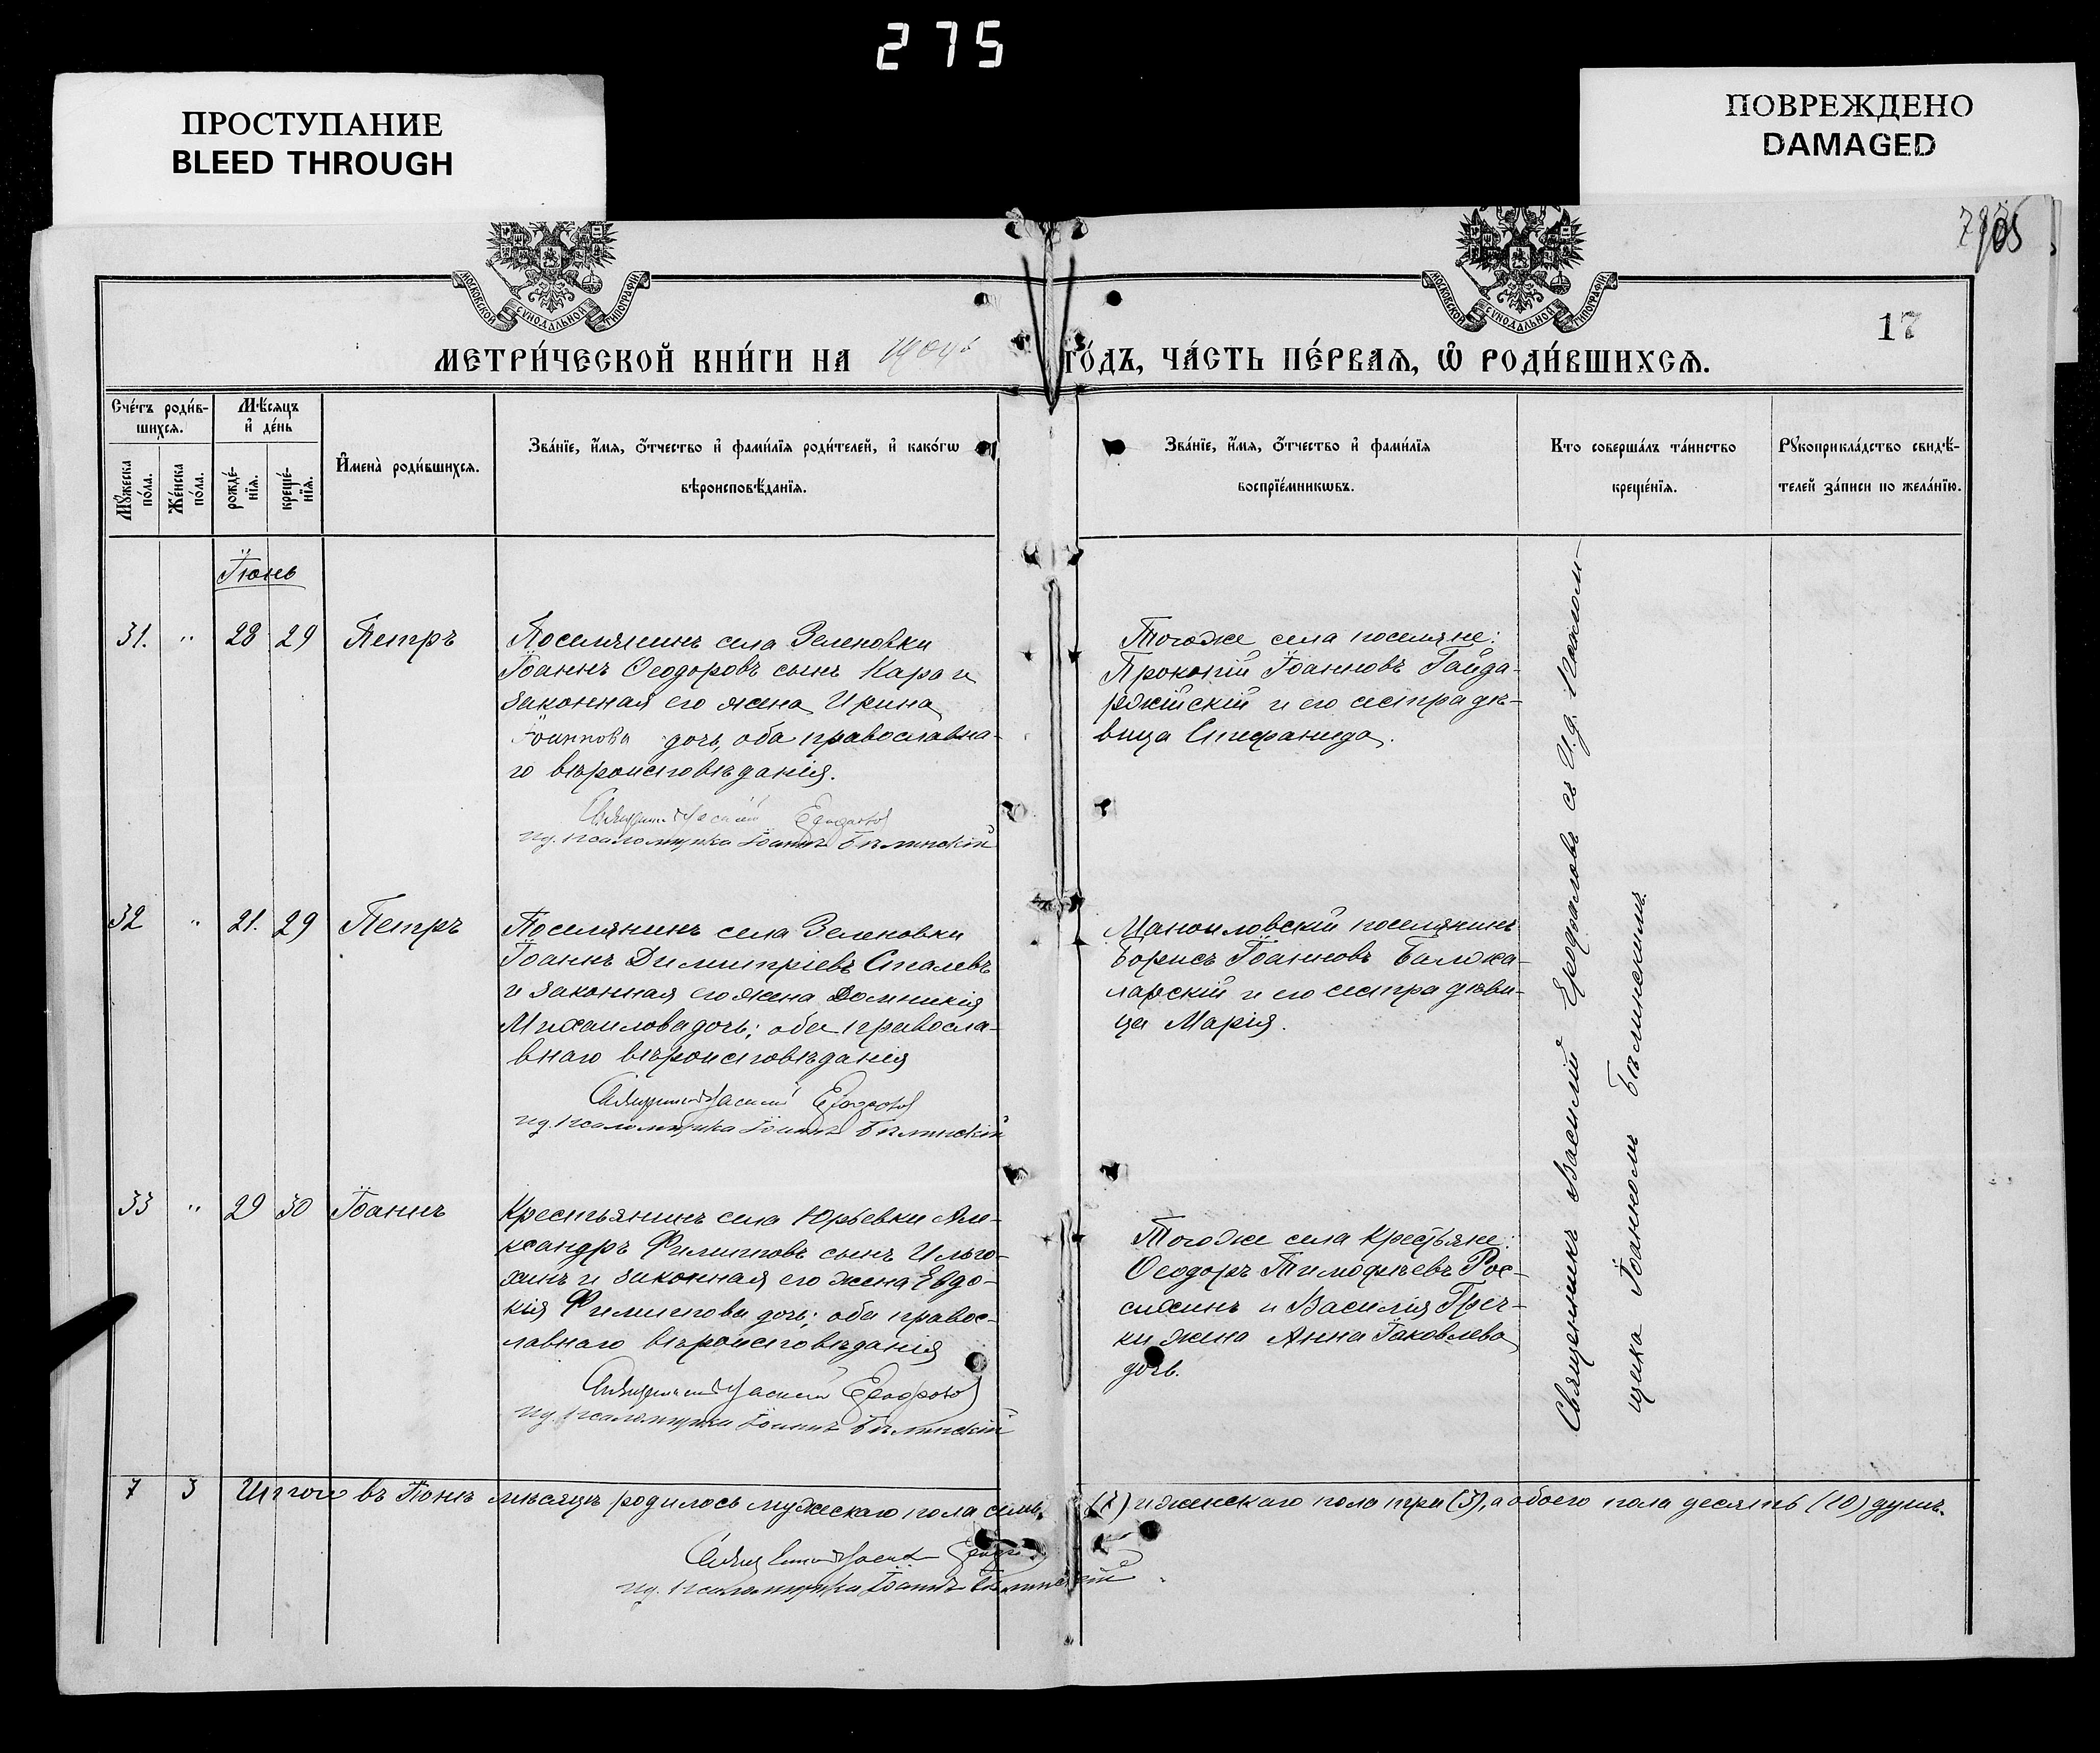 275
ПРОСТУПАНИЕ
BLEED THROUGH
ПОВРЕЖДЕНО
DAMAGED
МОСКОВСКОЙ СѴНОДАЛЬНОЙ ТИПОГРАФІИ
МОСКОВСКОЙ СѴНОДАЛЬНОЙ ТИПОГРАФІИ
17
МЕТРИ́ЧЕСКОЙ КНИ́ГИ НА 1904 ГО́ДЪ, ЧА́СТЬ ПЕ́РВАѦ, Ѡ҆ РОДИ́ВШИХСѦ.
Сче́тъ роди́в-
шихсѧ.
Мꙋ́жеска по́ла.
Же́нска по́ла.
Мѣ́сѧцъ и҆ де́нь
рожде́-
нїѧ.
креще́-
нїѧ.
И҆мена̀ роди́вшихсѧ.
Зва́нїе, и҆́мѧ, ѻ҆́тчество и҆ фами́лїѧ роди́телей, и҆ како́гѡ
вѣроисповѣ́данїѧ.
Зва́нїе, и҆́мѧ, ѻ҆́тчество и҆ фами́лїѧ
воспрїе́мникѡвъ.
Кто соверша́лъ та́инство
креще́нїѧ.
Рꙋкоприкла́дство свидѣ́-
телей за́писи по жела́нїю.
Іюнь
31. " 28 29 Петръ
Поселянинъ села Зеленовки
Іоаннъ Ѳеодоровъ сынъ Кара и
законная его жена Ирина
Іоаннова дочь, оба православна-
го вѣроисповѣданія.
Священникъ Василій Ероdаловъ
и.д. псаломщика Іоаннъ Бѣлинскій
Тогоже села поселяне:
Прокопій Іоанновъ Гайда-
ржійскій и его сестра дѣ-
вица Стефанида.
32 " 21. 29 Петръ
Поселянинъ села Зеленовки
Іоаннъ Димитріевъ Спалевъ
и законная его жена Домникія
Михаилова дочь; оба правосла-
внаго вѣроисповѣданія
Священникъ Василій
и.д. псаломщика Іоаннъ Бѣлинскій
Маноиловскій поселянинъ
Борисъ Іоанновъ
и его сестра дѣви-
ца Марія.
33 " 29 30 Іоаннъ
Крестьянинъ села Юрьевки Але-
ксандръ Филипповъ сынъ Ильго-
хинъ и законная его жена Евдо-
кія Филиппова дочь; оба правос-
лавнаго вѣроисповѣданія
Священникъ Василій
и.д. псаломщика Іоаннъ Бѣлинскій
Тогоже села крестьяне:
Ѳеодоръ Тимофѣевъ Рос-
сихинъ и Василія Греч-
ки жена Анна Іаковлева
дочь.
Священникъ Василій съ И.д. псалом-
щика Іоанномъ Бѣлинскимъ.
7 3 Итого въ Іюнѣ мѣсяцѣ родилось мужескаго пола семь (7) и женскаго пола три (3), а обоего пола десять (10) душъ.
Священникъ
и.д. псаломщика Іоаннъ Бѣлинскій